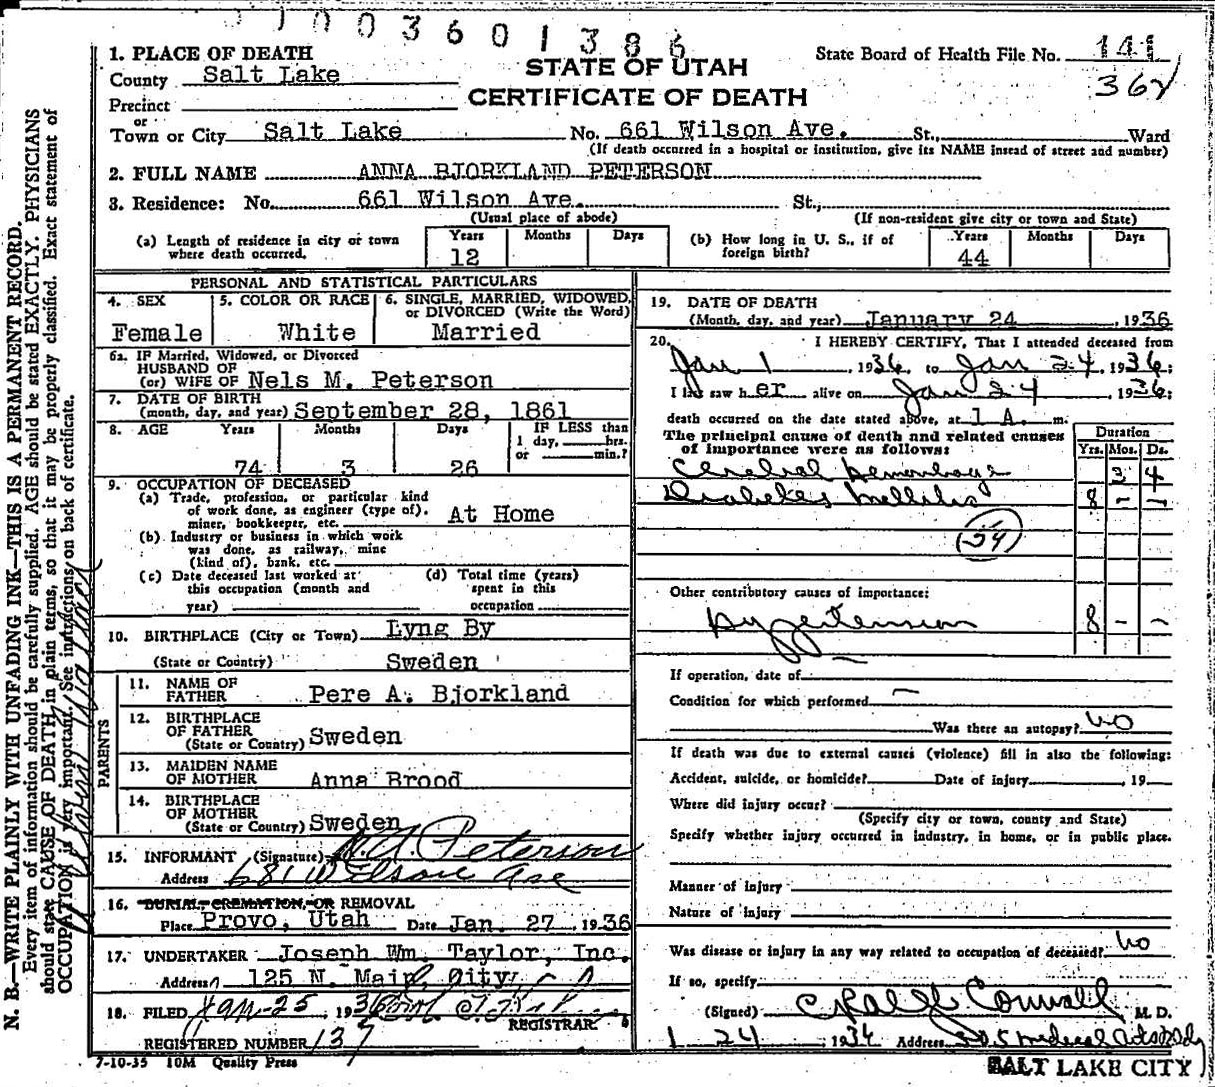 1003601386
1. PLACE OF DEATH
County Salt Lake
STATE OF UTAH
State Board of Health File No. 141
362
Precinct
CERTIFICATE OF DEATH
or
Town or City Salt Lake No. 661 Wilson Ave. St., Ward
(If death occurred in a hospital or institution, give its NAME insead of street and number)
2. FULL NAME ANNA BJORKLAND PETERSON
3. Residence: No. 661 Wilson Ave. St.,
(Usual place of abode) (If non-resident give city or town and State)
(a) Length of residence in city or town where death occurred. Years 12 Months Days
(b) How long in U. S., if of foreign birth? Years 44 Months Days
PERSONAL AND STATISTICAL PARTICULARS
4. SEX Female
5. COLOR OR RACE White
6. SINGLE, MARRIED, WIDOWED, or DIVORCED (Write the Word) Married
6a. IF Married, Widowed, or Divorced
HUSBAND OF
(or) WIFE OF Nels M. Peterson
7. DATE OF BIRTH
(month, day, and year) September 28, 1861
8. AGE Years 74 Months 3 Days 26
IF LESS than
1 day, hrs.
or min.?
9. OCCUPATION OF DECEASED
(a) Trade, profession, or particular kind
of work done, as engineer (type of),
miner, bookkeeper, etc. At Home
(b) Industry or business in which work
was done, as railway, mine
(kind of), bank, etc.
(c) Date deceased last worked at
this occupation (month and
year)
(d) Total time (years)
spent in this
occupation
10. BIRTHPLACE (City or Town) Lyng By
(State or Country) Sweden
PARENTS
11. NAME OF
FATHER Pere A. Bjorkland
12. BIRTHPLACE
OF FATHER
(State or Country) Sweden
13. MAIDEN NAME
OF MOTHER Anna Brood
14. BIRTHPLACE
OF MOTHER
(State or Country) Sweden
15. INFORMANT (Signature) N. A. Peterson
Address 681 Wilson Ave
16. BURIAL, CREMATION, OR REMOVAL
Place Provo, Utah Date Jan. 27, 1936
17. UNDERTAKER Joseph Wm. Taylor, Inc.
Address 125 N. Main, City
18. FILED Jan-25 1936
REGISTRAR.
REGISTERED NUMBER 137
7-10-35 10M Quality Press
19. DATE OF DEATH
(Month, day, and year) January 24, 1936
20. I HEREBY CERTIFY, That I attended deceased from
Jan 1, 1936 to Jan 24, 1936;
I last saw her alive on Jan 24, 1936;
death occurred on the date stated above, at 1 A. m.
The principal cause of death and related causes
of importance were as follows:
Duration
Yrs. Mos. Ds.
Cerebral hemorrhage 3 4
Diabetes Mellitus 8 - -
54
Other contributory causes of importance:
Hypertension 8 - -
If operation, date of
Condition for which performed
Was there an autopsy? No
If death was due to external causes (violence) fill in also the following:
Accident, suicide, or homicide? Date of injury, 19
Where did injury occur?
(Specify city or town, county and State)
Specify whether injury occurred in industry, in home, or in public place.
Manner of injury
Nature of injury
Was disease or injury in any way related to occupation of deceased? No
If so, specify
(Signed) M. D.
1 24, 1934 Address 305 Medical Arts Bldg
SALT LAKE CITY
N. B.—WRITE PLAINLY WITH UNFADING INK—THIS IS A PERMANENT RECORD.
Every item of information should be carefully supplied. AGE should be stated EXACTLY. PHYSICIANS
should state CAUSE OF DEATH in plain terms, so that it may be properly classified. Exact statement of
OCCUPATION is very important. See instructions on back of certificate.